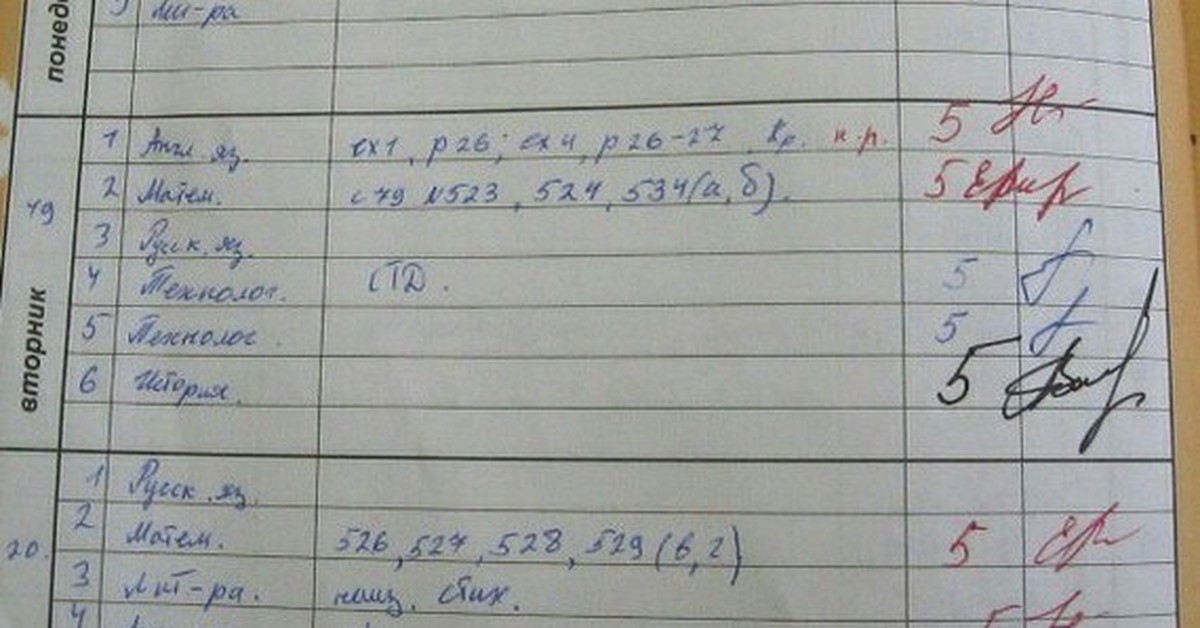 понед
5 Лит-ра
19
вторник
1 Англ яз. ex1, p26; ex4, p26-27. Кр. к.р. 5
2 Матем. с79 №523, 524, 534(а, б). 5
3 Русск. яз.
4 Технолог. СТД. 5
5 Технолог. 5
6 История. 5
20.
1 Русск. яз.
2 Матем. 526, 527, 528, 529 (в, г) 5
3 Лит-ра. наиз. стих.
4 5